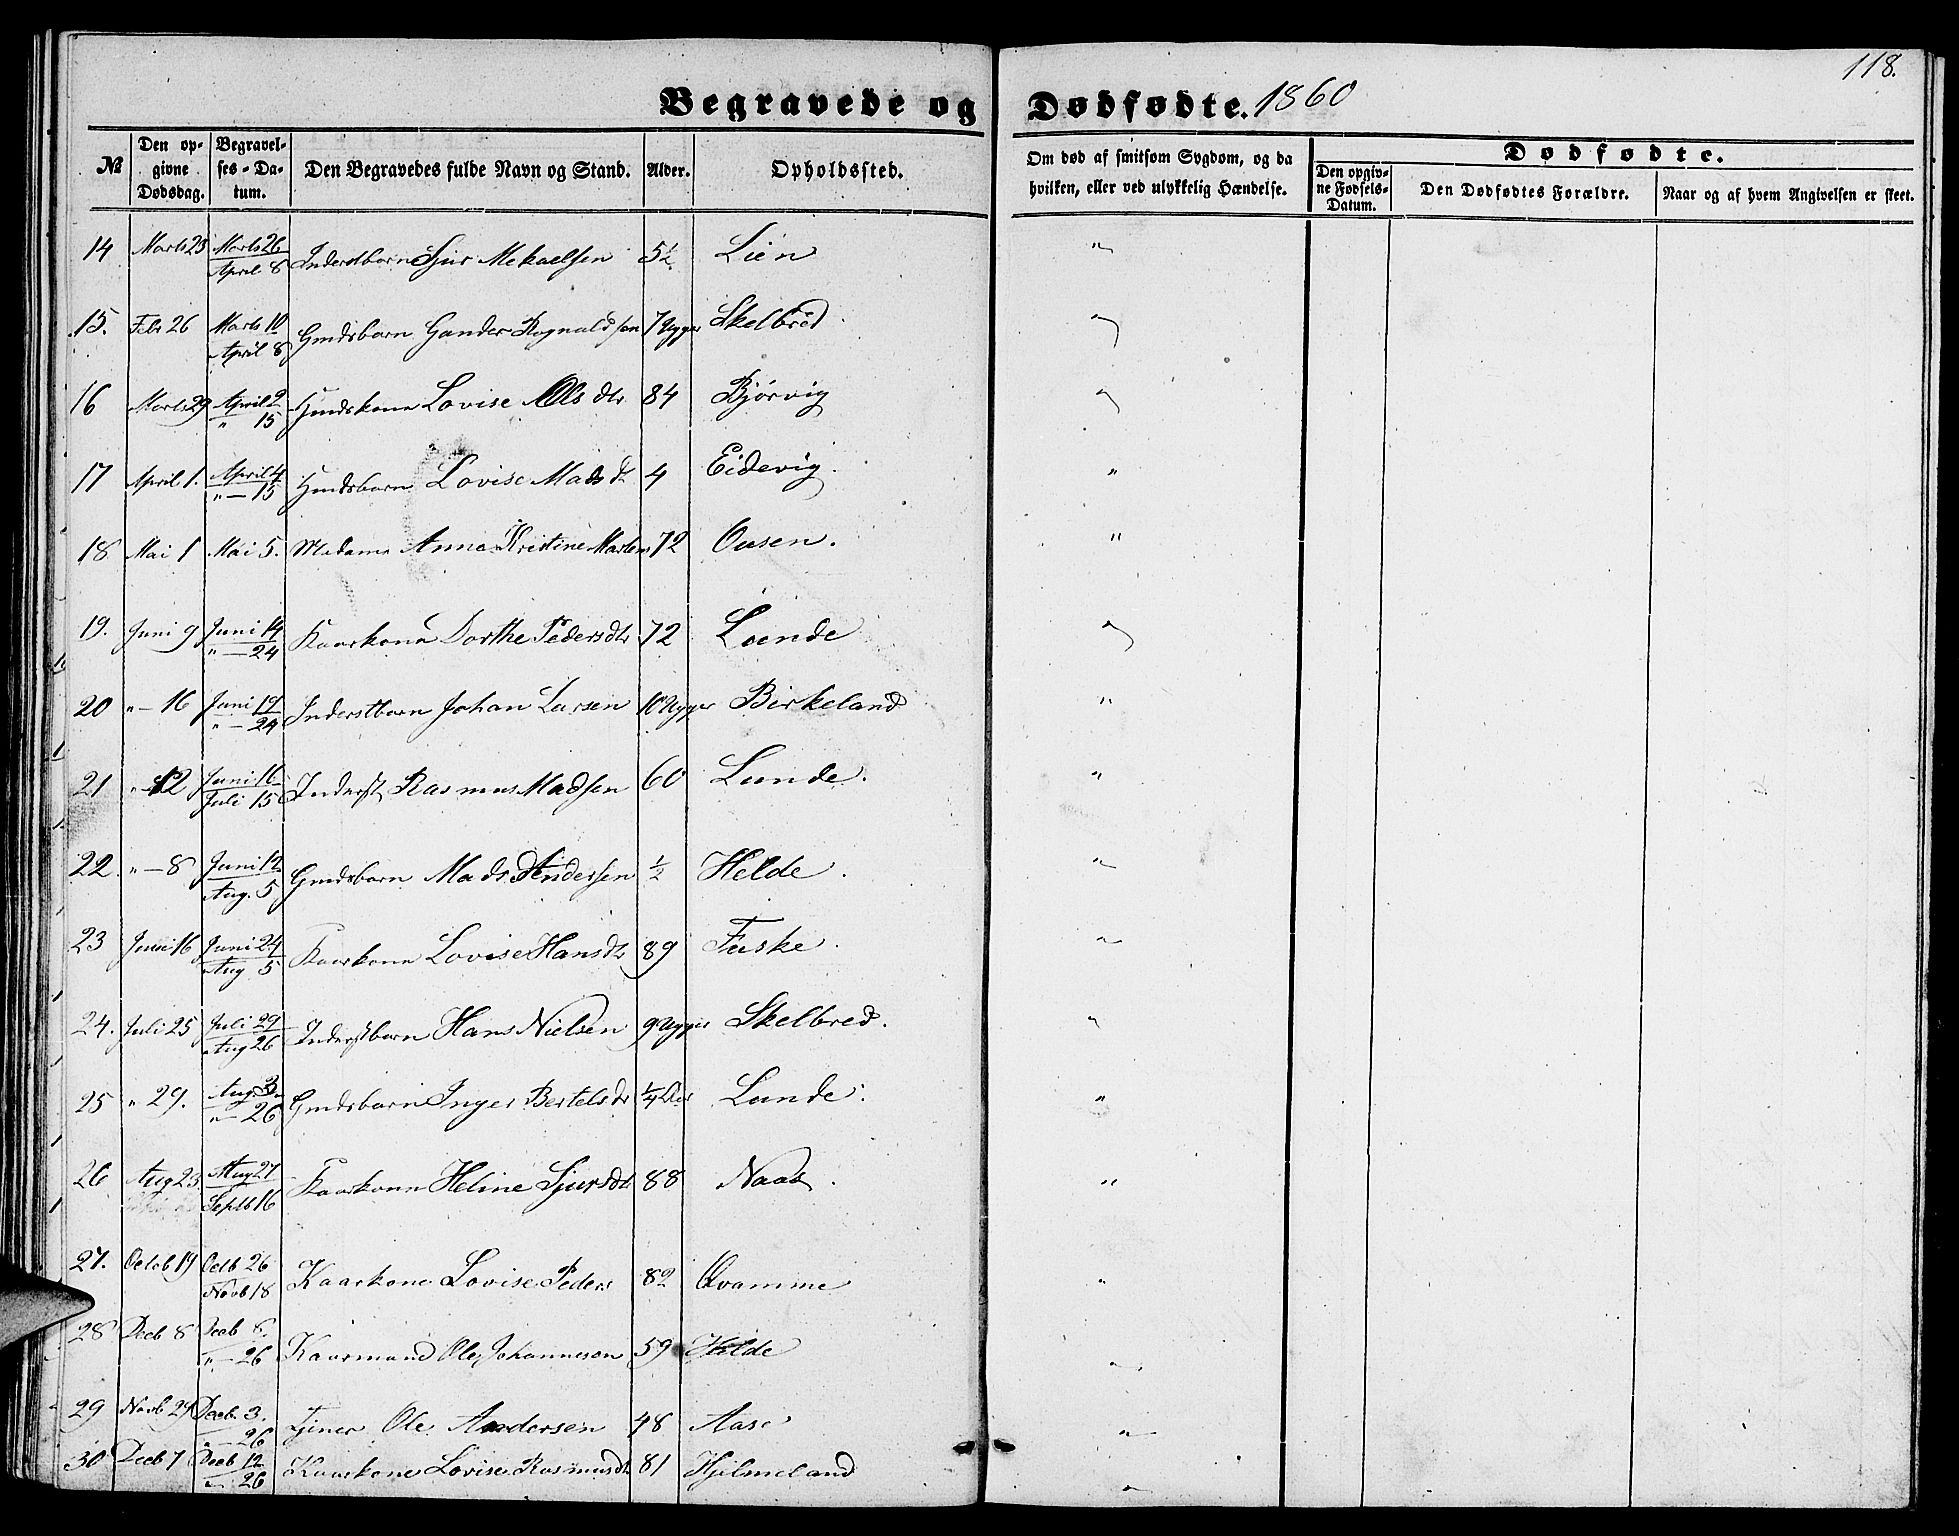 118.
Begravede og Dødfødte. 1860
№ Den opgivne Dødsdag. Begravelses-Datum. Den Begravedes fulde Navn og Stand. Alder. Opholdssted. Om død af smitsom Sygdom, og da hvilken, eller ved ulykkelig Hændelse. Dødfødte. Den opgivne Fødsels-Datum. Den Dødfødtes Forældre. Naar og af hvem Angivelsen er skeet.
14 Marts 23 Marts 26 April 8 Inderstbarn Sjur Mekaelsen 5½ Lien "
15. Febr 26 Marts 10 April 8 Gmdsbarn Gunder Rognaldsen 7 Uger Skelbred "
16 Marts 29 April 2 " 15 Hmdskone Lovise Olsdtr 84 Bjørvig "
17 April 1. April 4 " — 15 Hmdsbarn Lovise Madsdt 4 Eidevig. "
18 Mai 1 Mai 5. Madame Anna Kristine 72 Ousen. "
19. Juni 9 Juni 14 " — 24 Kaarkone Dorthe Pedersdtr 72 Lunde "
20 " — 16 Juni 19 " — 24 Inderstbarn Johan Larsen 10 Uger Birkeland "
21 " 12 Juni 16 Juli 15 Inderst Rasmus Madsen 60 Lunde. "
22. " — 8 Juni 12 Aug. 5 Gmdsbarn Mads Andersen ½ Helde. "
23 Juni 16 Juni 24 Aug 5 Kaarkone Lovise Hansdtr 89 Fuske. "
24. Juli 25 Juli 29 Aug 26 Inderstbarn Hans Nielsen 9 Uger Skelbred. "
25 " 29. Aug 3. " — 26 Gmdsbarn Inger Bertelsdr ¼ Lunde. "
26 Aug 23. Aug 27 Septb 16 Kaarkone Heline Sjursdtr 88 Naas. "
27. Octob 19 Octb 26 Novb 18 Kaarkone Lovise Peders 82 Qvamme "
28 Decb 8 Decb " — 26 Kaarmand Ole Johannesen 59 Helde "
29 Novb 29 Decb. 3. " — 26 Tjener Ole Andersen 48 Aase "
30 Decb 7 Decb 12 " 26 Kaarkone Lovise Rasmusdt 81 Hjelmeland "